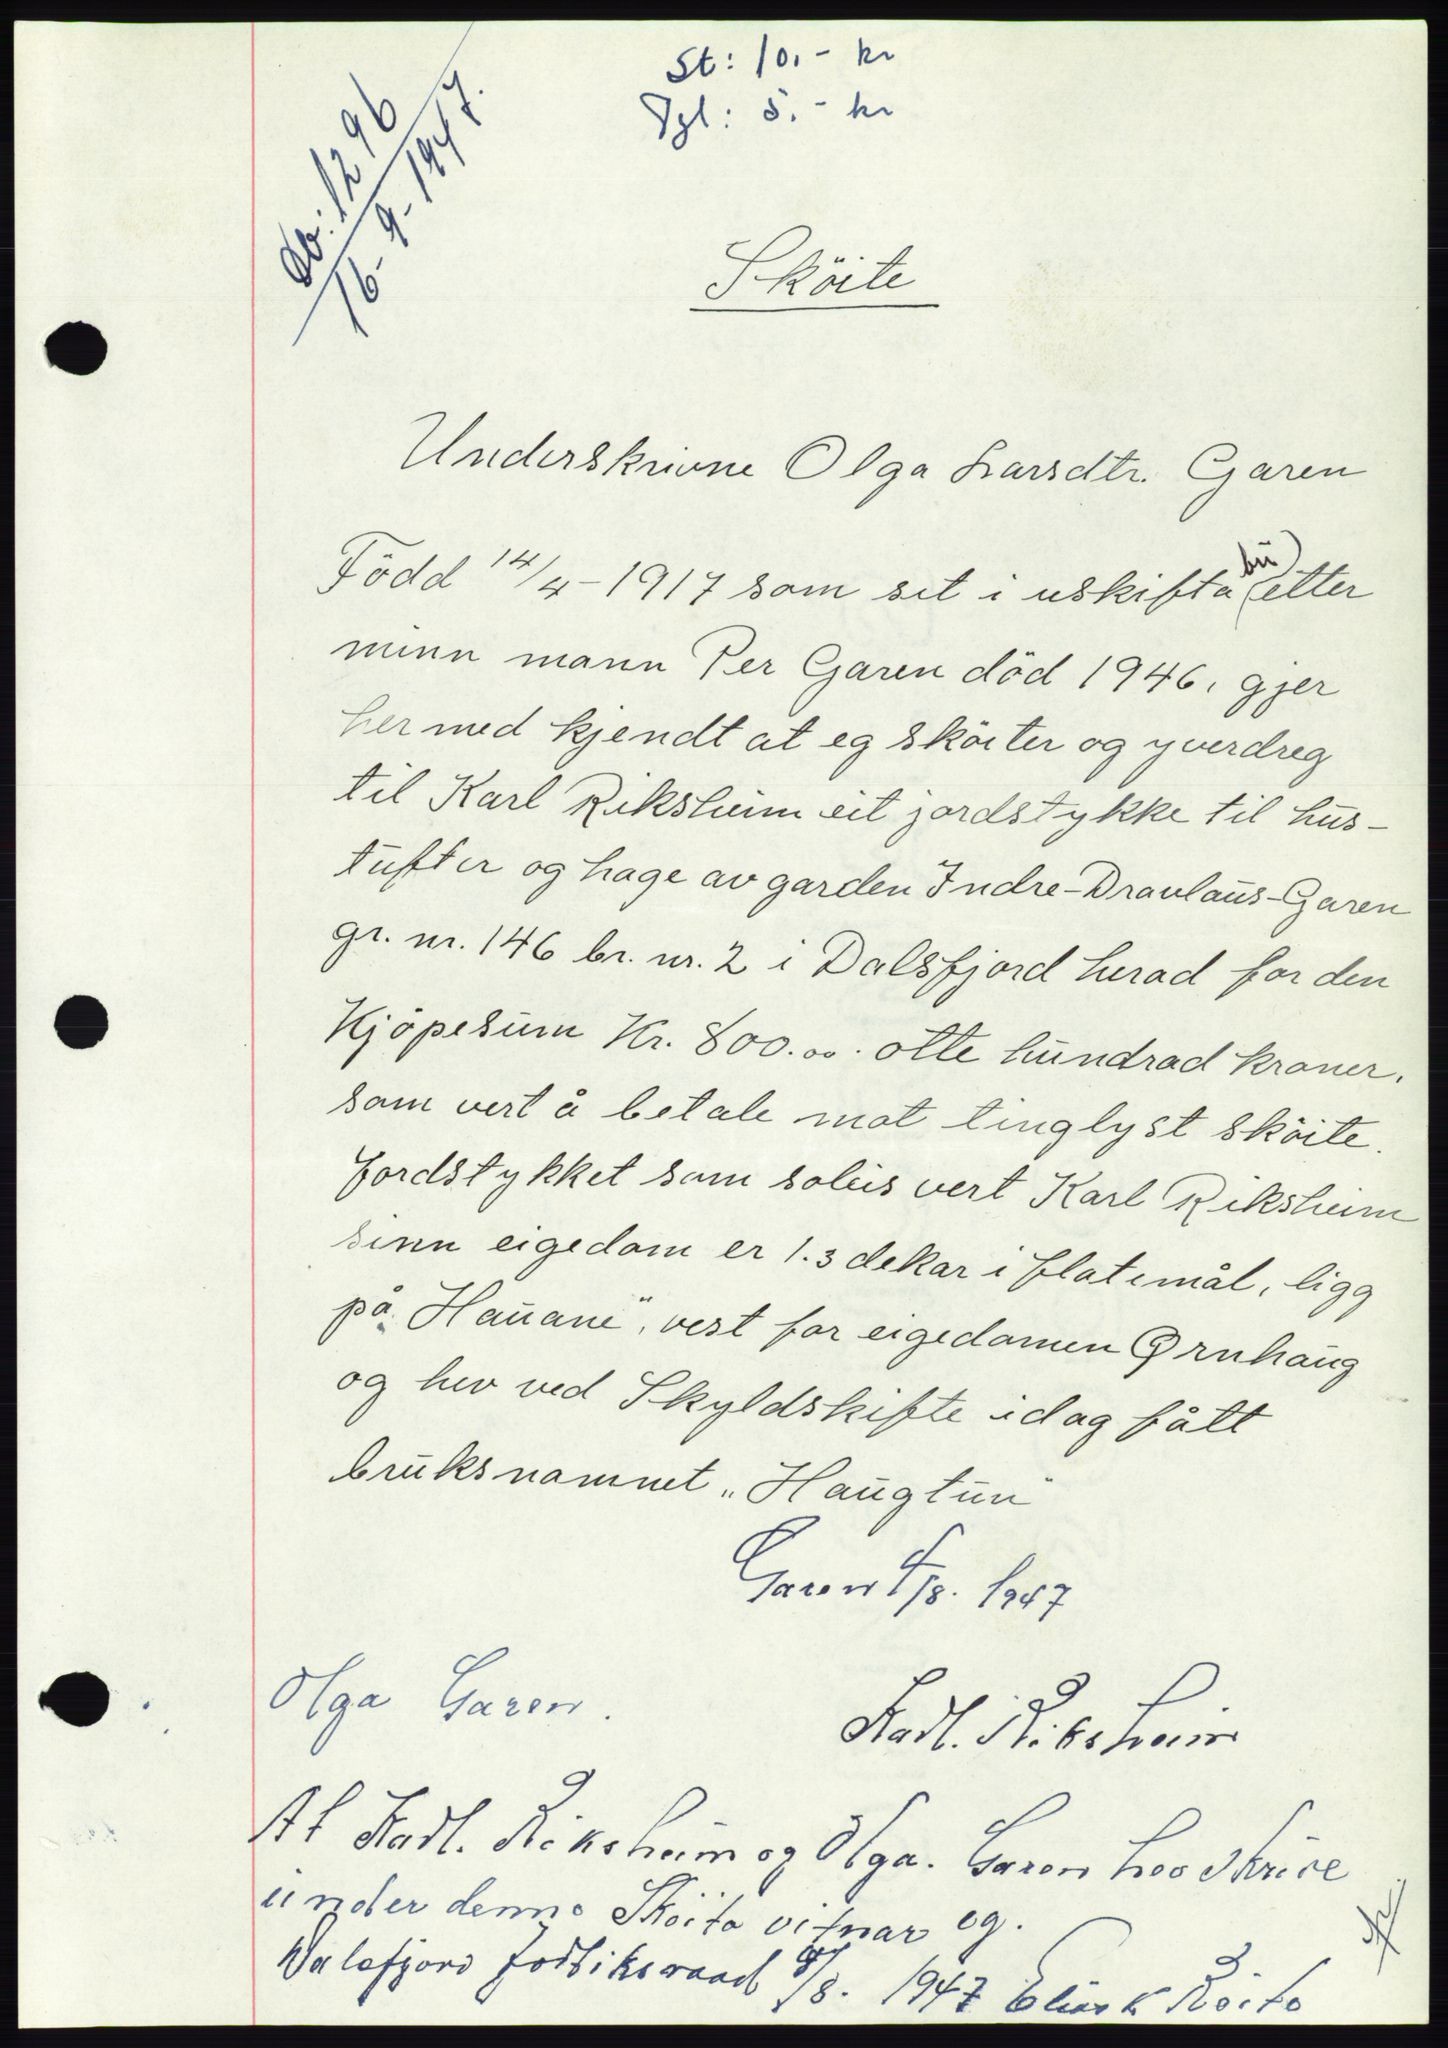 St: 10.- kr
Tgl: 5.- kr
Db: 1296
16-9-1947.
Sköite
Underskrivne Olga Larsdtr. Garen
Född 14/4-1917 som sit i uskifta (bu) etter
minn mann Per Garen död 1946, gjer
her med kjendt at eg sköiter og yverdreg
til Karl Riksheim eit jordstykke til hus-
tufter og hage av garden Indre-Dravlaus-Garen
gr. nr. 146 br. nr. 2 i Dalsfjord herad for den
Kjöpesum Kr. 800.00. otte hundrad kroner,
som vert å betale mot tinglyst sköite.
Jordstykket som soleis vert Karl Riksheim
sinn eigedom er 1.3 dekar i flatemål, ligg
på „Hauane", vest for eigedomen Ørnhaug
og hev ved Skyldskifte idag fått
bruksnamnet „Haugtun"
Garen 4/8. 1947
Olga Garen.
Karl. Riksheim
At Karl. Riksheim og Olga. Garen hev skrive
under denne Sköite vitnar eg.
Dalsfjord 8/8. 1947 Elias K Röite